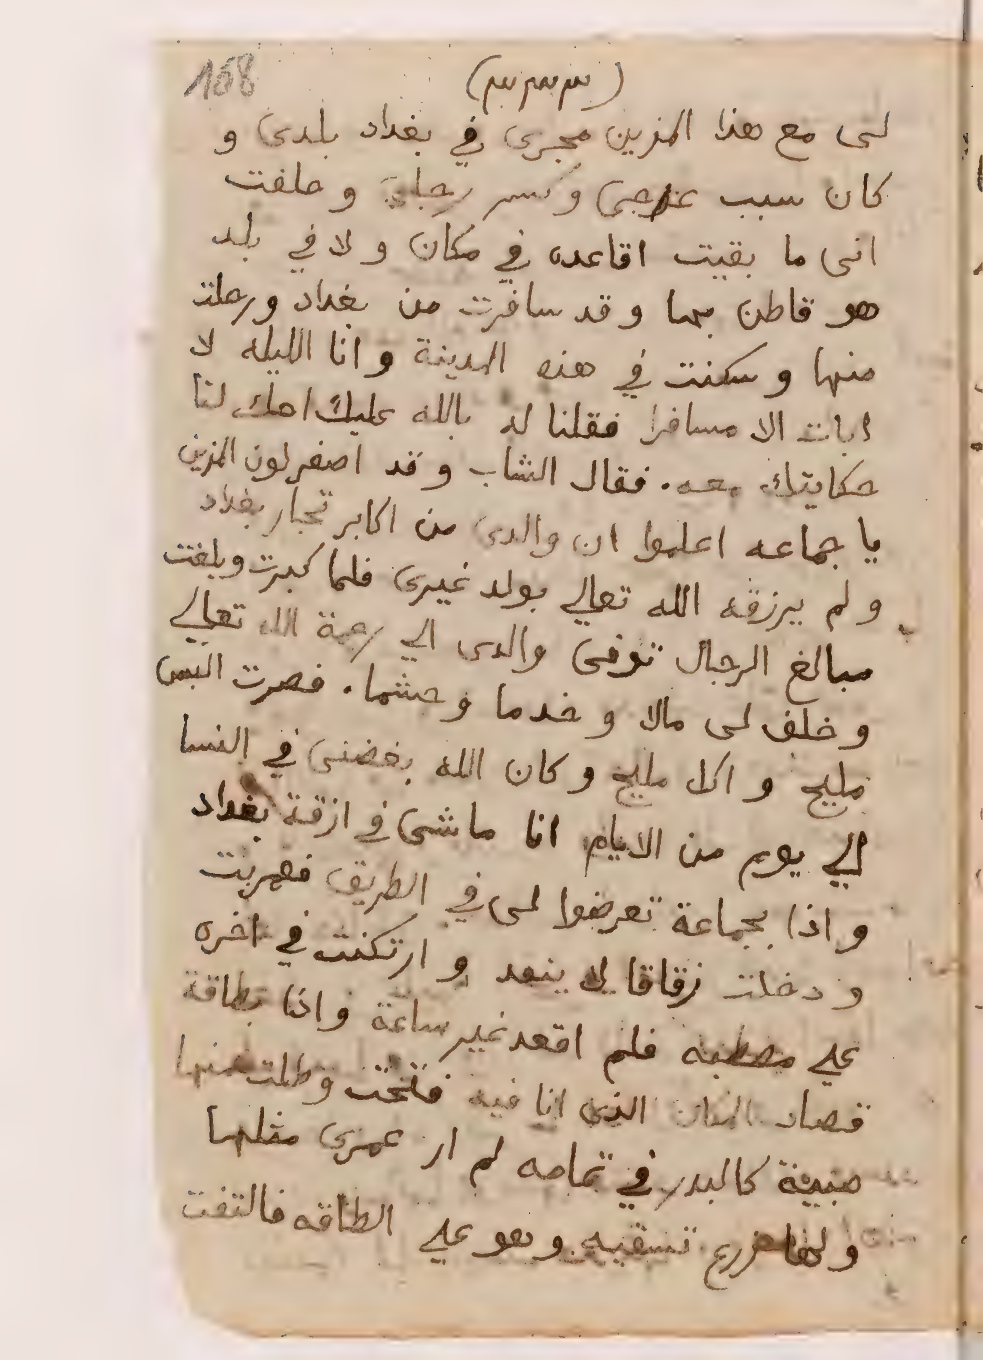 168
(٣٣٣)
لى مع هذا المزين مجرى في بغداد بلدى و
كان سبب عرجى وكسر رجلى وحلفت
انى ما بقيت اقاعده في مكان ولا في بلد
هو قاطن بها وقد سافرت من بغداد ورحلت
منها وسكنت في هذه المدينة وانا الليله لا
ابات الا مسافرا فقلنا له بالله عليك احك لنا
حكايتك معه. فقال الشاب وقد اصفر لون المزين
يا جماعه اعلموا ان والدى من اكابر تجار بغداد
ولم يرزقه الله تعالي بولد غيرى فلما كبرت وبلغت
مبالغ الرجال توفى والدى الي رحمة الله تعالي
وخلف لى مالا وخدما وحشما. فصرت البس
مليح واكل مليح وكان الله بغضنى في النسا
الي يوم من الايام انا ماشى في ازقة بغداد
واذا بجماعة تعرضوا لى في الطريق فهربت
ودخلت زقاقا لا ينعد وارتكنت في اخره
علي مصطبه فلم اقعد غير ساعة واذا بطاقة
قصاد المكان الذى انا فيه فتحت وطلت منها
صبية كالبدر في تمامه لم ار عمرى مثلها
ولها زرع تسقيه وهو علي الطاقه فالتفت